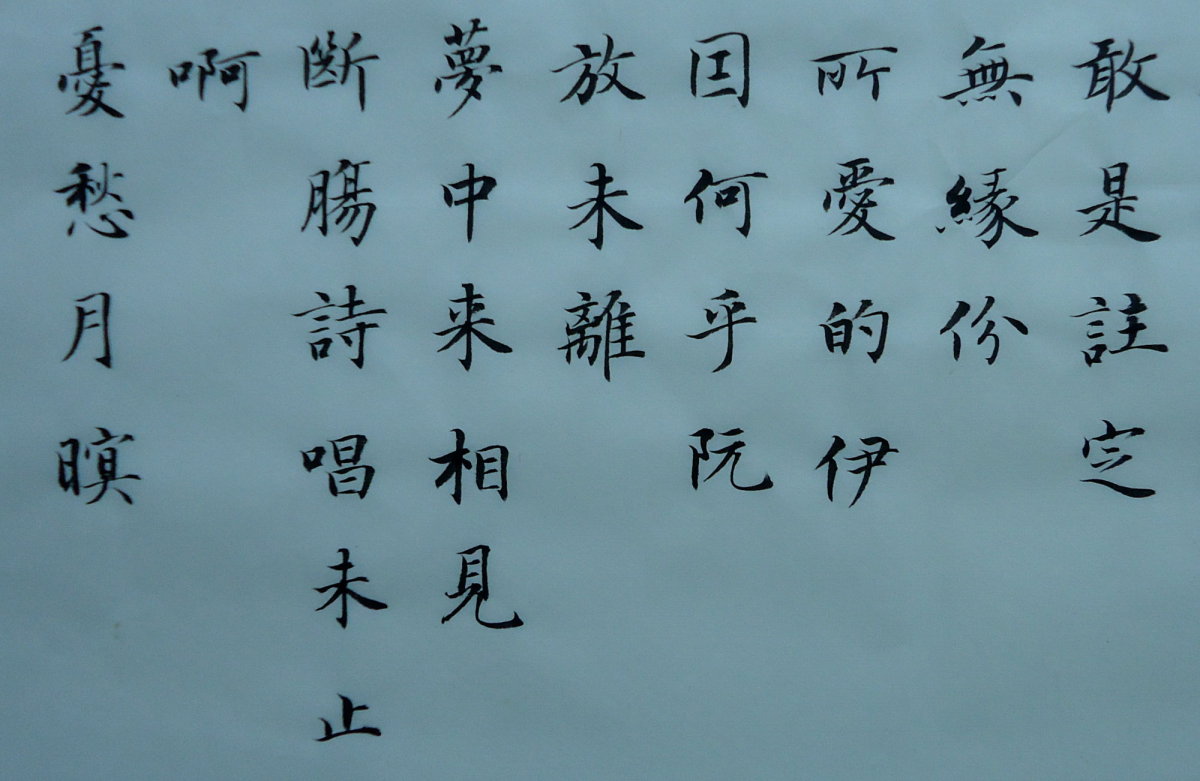 敢是註定
無緣份
所愛的伊
因何乎阮
放未離
夢中来相見
斷腸詩唱未止
啊
憂愁月暝